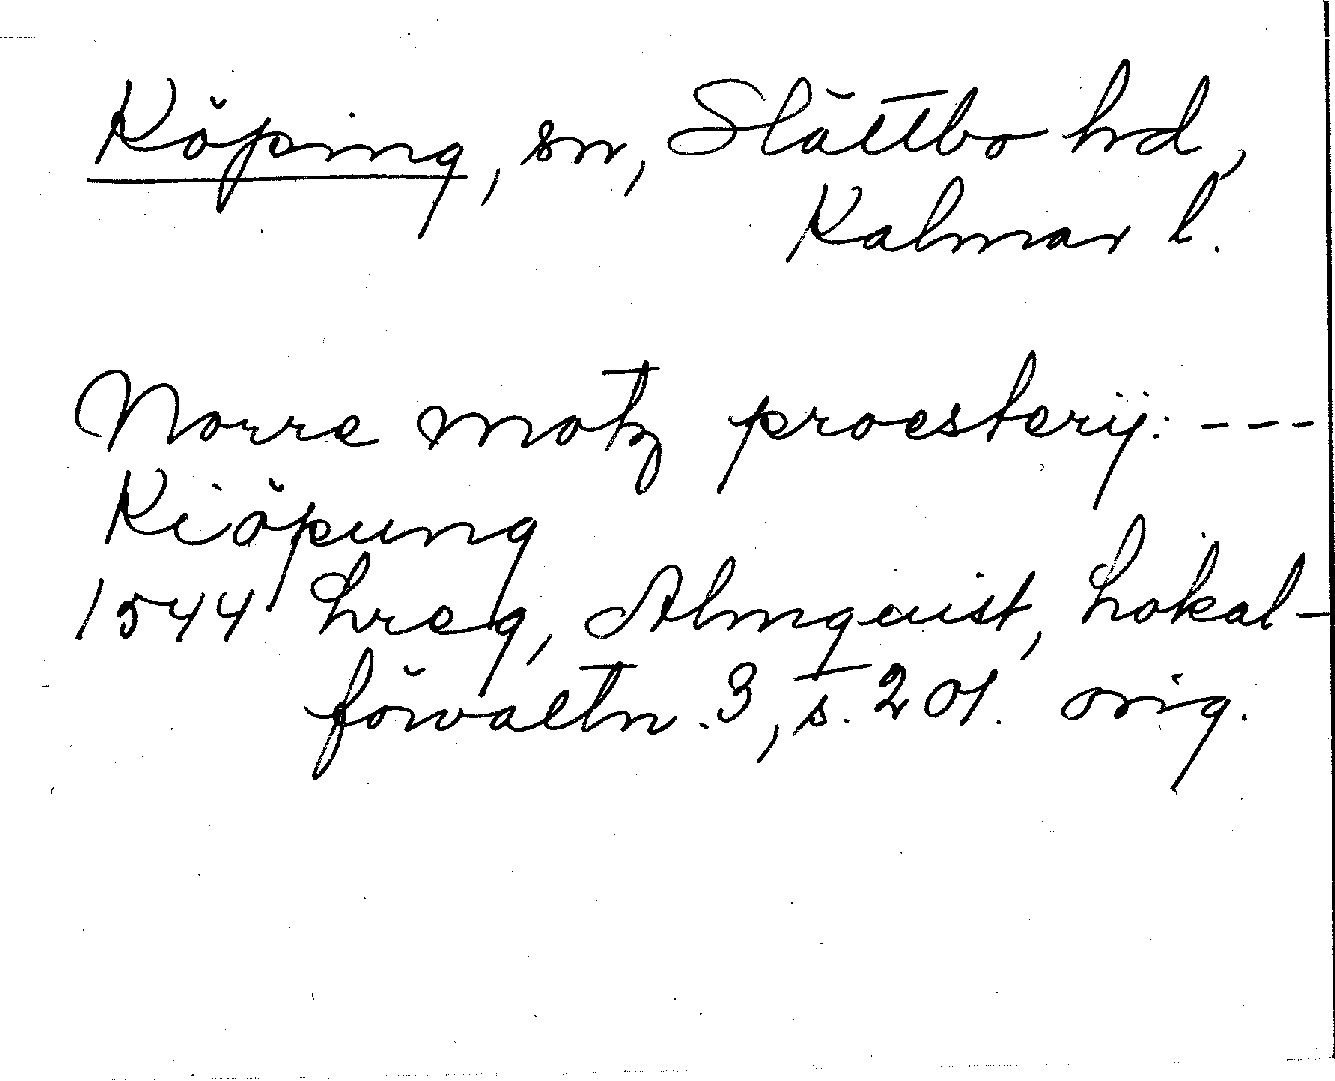 Köping, sn, Slättbo hd,
Kalmar l.
Norre motz proesterij: ---
Kiöpung
1544 Lreg, Almquist, Lokal-
förvaltn. 3, s. 201. orig.